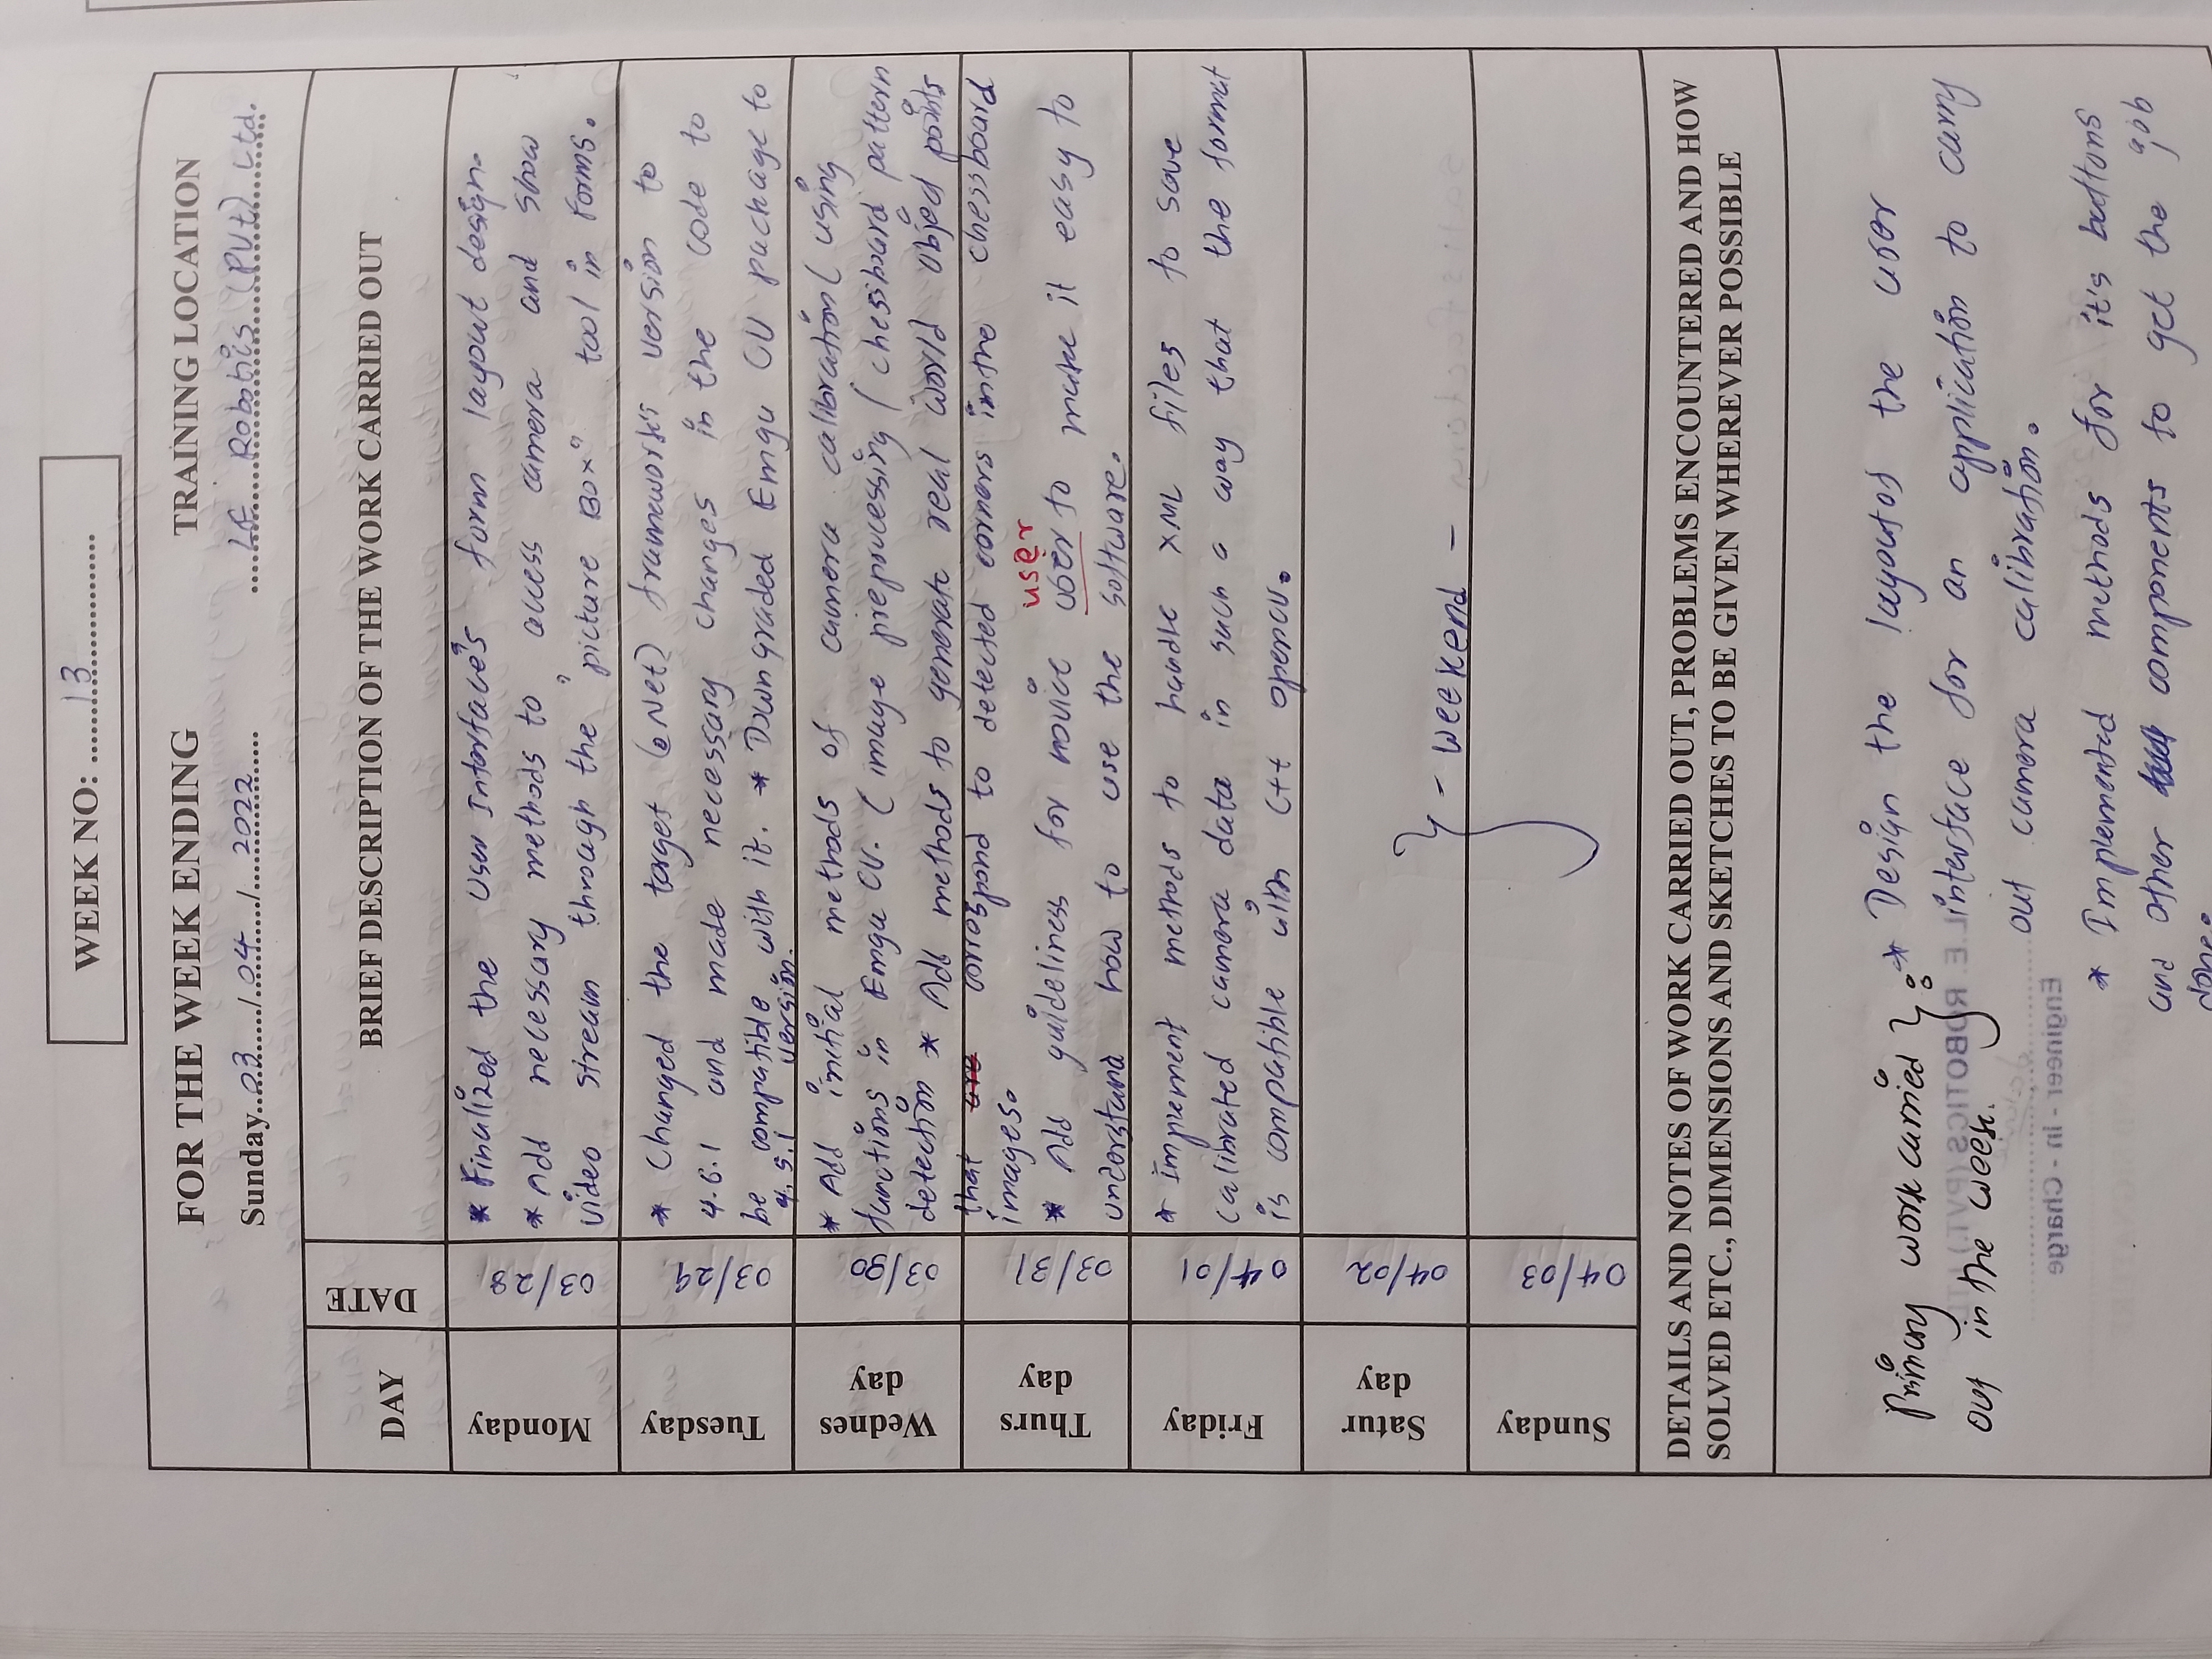 WEEK NO: 13
FOR THE WEEK ENDING
TRAINING LOCATION
Sunday 03 / 04 / 2022
LE Robotics (PVt) Ltd.
DAY
DATE
BRIEF DESCRIPTION OF THE WORK CARRIED OUT
Monday
03/28
* Finalized the User Interface's form layout design.
* Add necessary methods to access camera and show
video stream through the "picture Box" tool in Forms.
Tuesday
03/29
* Changed the target (.Net) framework's version to
4.6.1 and made necessary changes in the code to
be compatible with it. * Downgraded Emgu CV package to
4.5.1 version.
Wednes
day
03/30
* Add initial methods of camera calibration ( using
functions in Emgu CV. ( image preprocessing / chessboard pattern
detection * Add methods to generate real world object points
Thurs
day
03/31
that are correspond to detected corners in the chessboard
images.
user
* Add guideliness for novice user to make it easy to
understand how to use the software.
Friday
04/01
* Implement methods to handle XML files to save
calibrated camera data in such a way that the format
is compatible with C++ opencv.
Satur
day
04/02
- weekend -
Sunday
04/03
DETAILS AND NOTES OF WORK CARRIED OUT, PROBLEMS ENCOUNTERED AND HOW
SOLVED ETC., DIMENSIONS AND SKETCHES TO BE GIVEN WHEREVER POSSIBLE
Primary work carried
out in the week.
: * Design the layout of the user
interface for an application to carry
out camera calibration.
* Implemented methods for it's buttons
and other components to get the job
done.
L.E. ROBOTICS (PVT.) LTD
Engineer - In - Charge